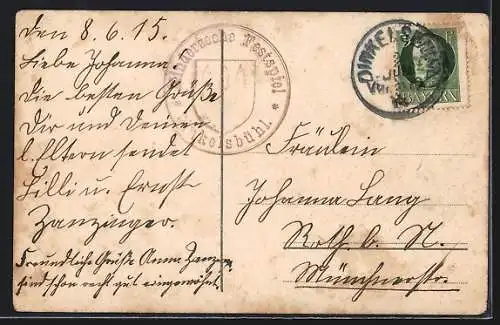 den 8.6.15.
Liebe Johanna
Die besten Grüße
Dir und Deinen
l. Eltern sendet
Lilli u. Ernst
Zanzinger.
Freundliche Grüße Anna Zanzinger,
sind schon recht gut eingewöhnt.
Kinderzeche Festspiel
kelsbühl.
DINKELSBÜHL
BAYERN
Fräulein
Johanna Lang
Roth b. N.
Münchnerstr.